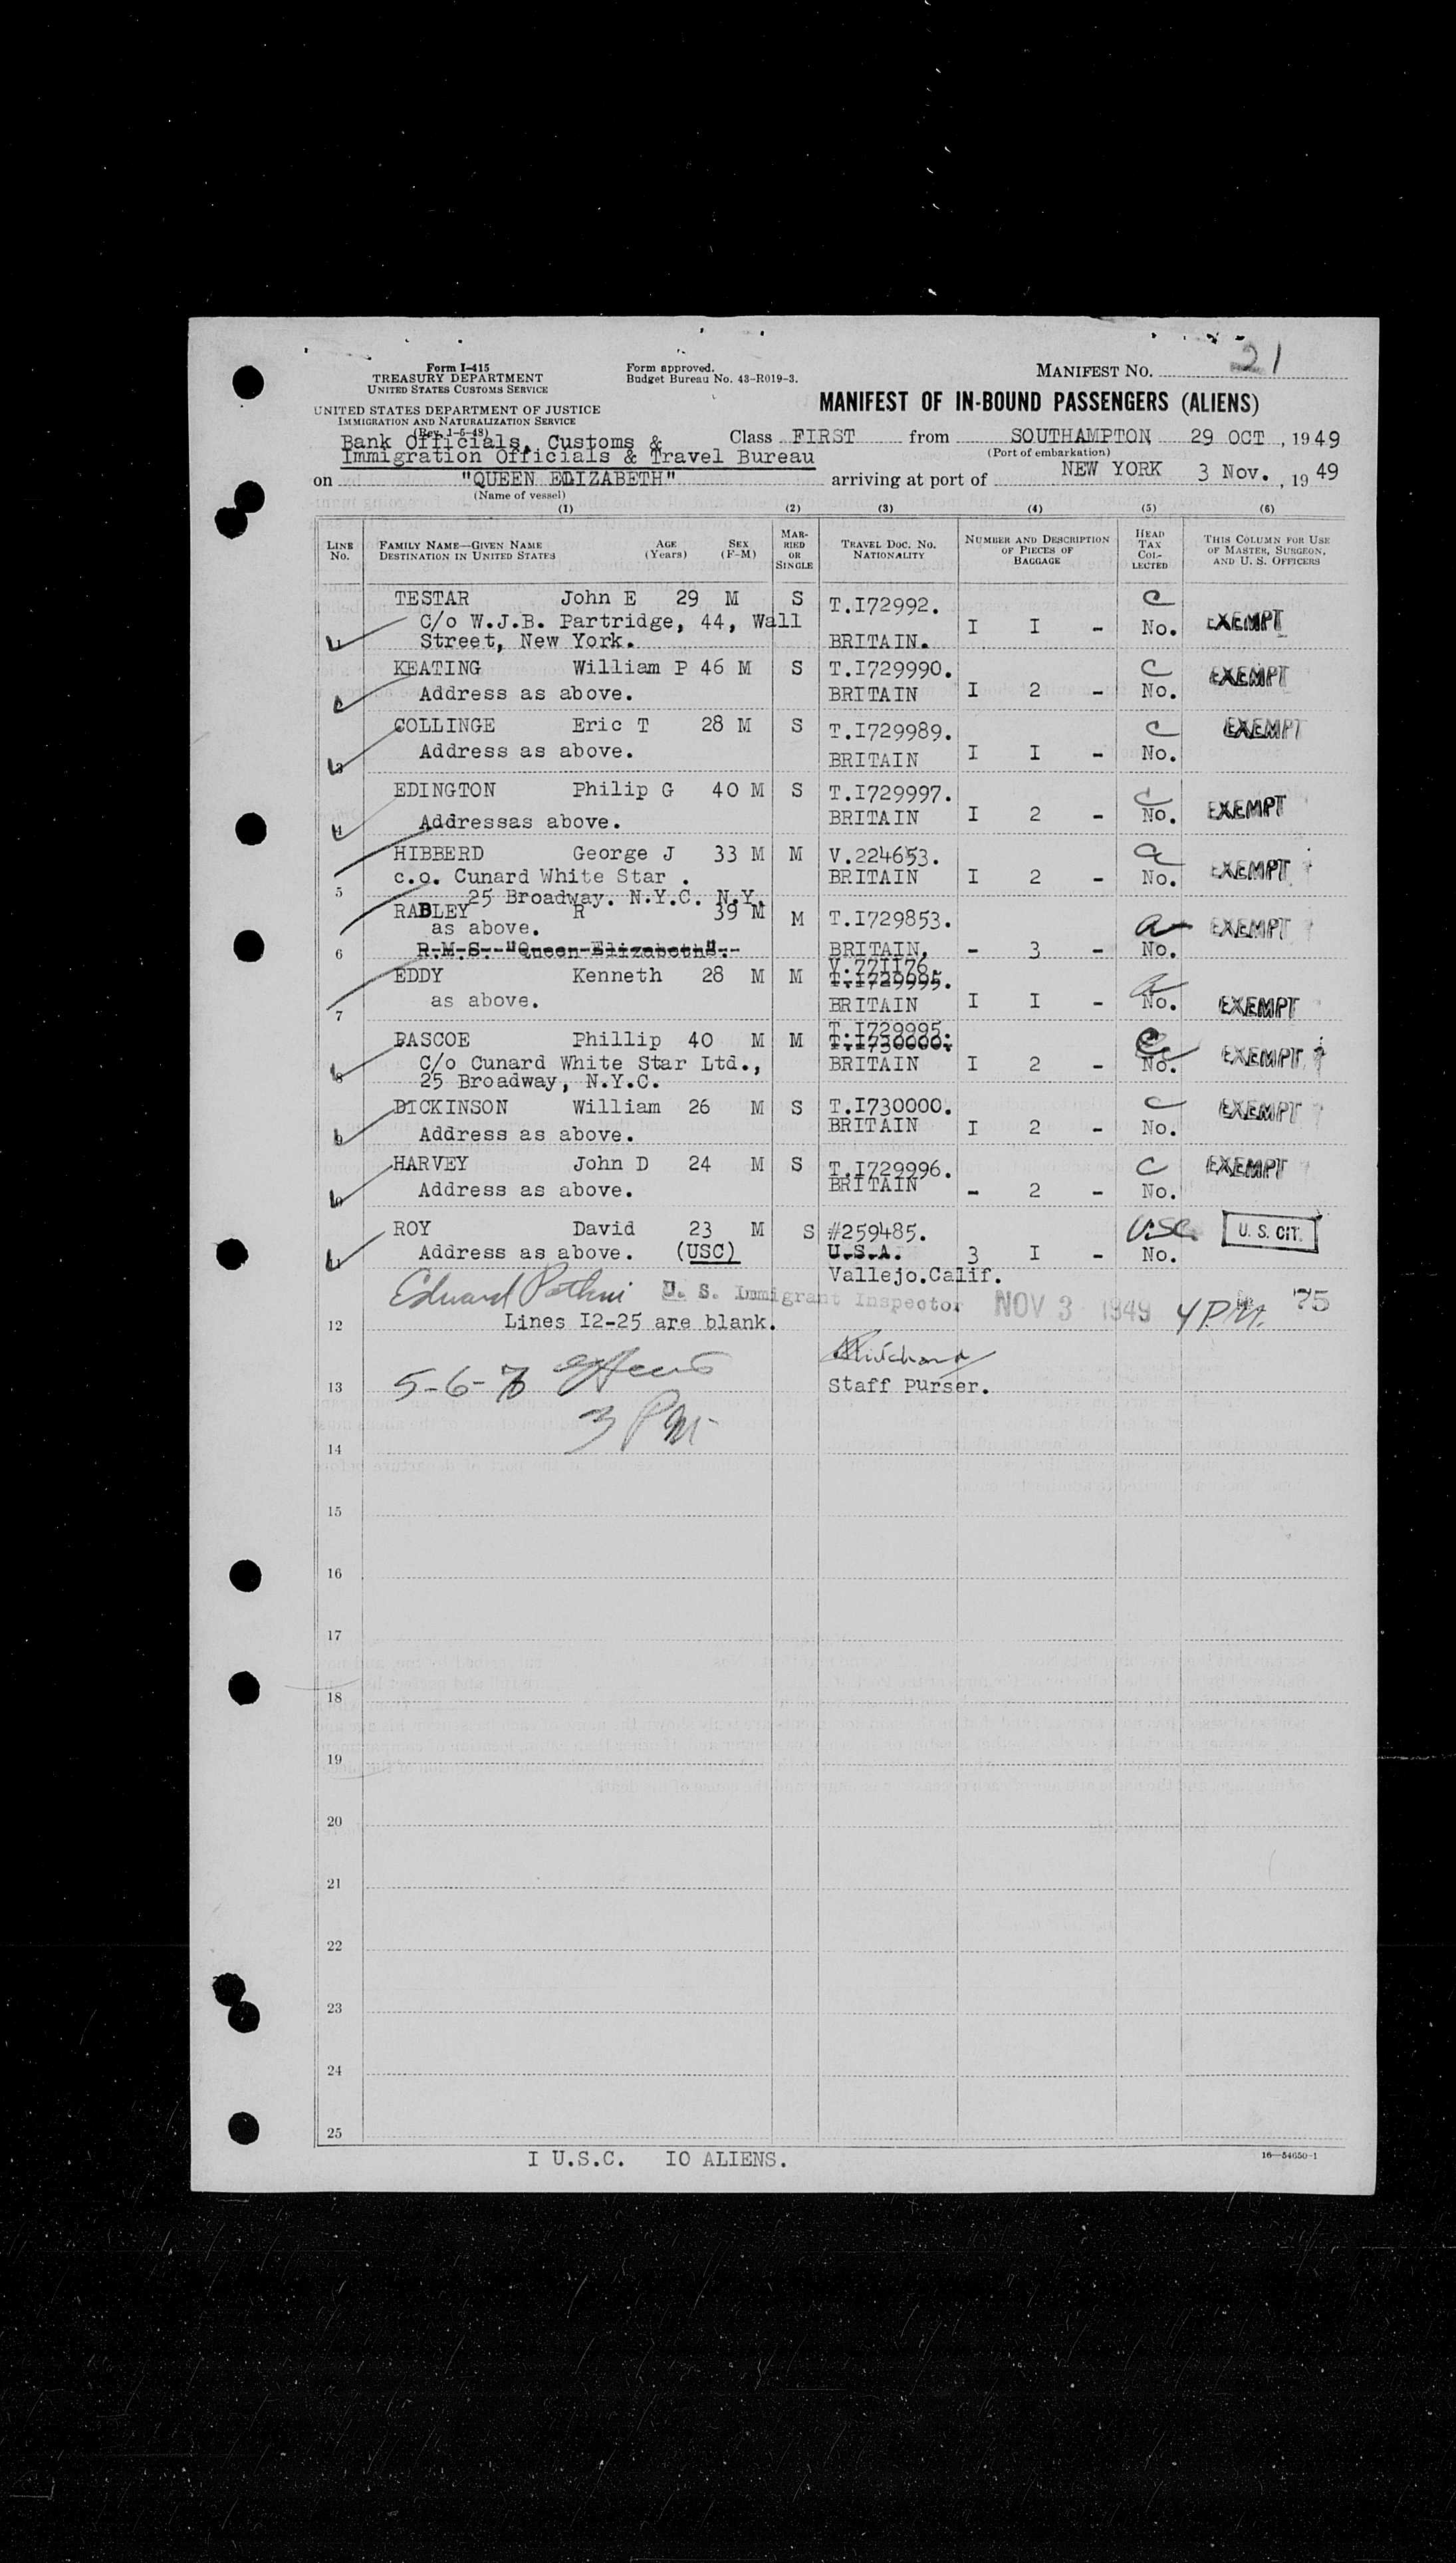 Form I-415
TREASURY DEPARTMENT
UNITED STATES CUSTOMS SERVICE
Form approved.
Budget Bureau No. 43-R019-3.
MANIFEST NO. 21
UNITED STATES DEPARTMENT OF JUSTICE
IMMIGRATION AND NATURALIZATION SERVICE
(Rev. 1-5-48)
MANIFEST OF IN-BOUND PASSENGERS (ALIENS)
Bank Officials, Customs &
Immigration Officials & Travel Bureau
Class FIRST from SOUTHAMPTON 29 OCT , 1949
(Port of embarkation)
on "QUEEN ELIZABETH" arriving at port of NEW YORK 3 Nov. , 19 49
(Name of vessel)
(1) (2) (3) (4) (5) (6)
LINE NO.
FAMILY NAME—GIVEN NAME AGE (Years) SEX (F-M)
DESTINATION IN UNITED STATES
MARRIED OR SINGLE
TRAVEL DOC. NO. NATIONALITY
NUMBER AND DESCRIPTION OF PIECES OF BAGGAGE
HEAD TAX COLLECTED
THIS COLUMN FOR USE OF MASTER, SURGEON, AND U. S. OFFICERS
TESTAR John E 29 M S T.I72992. C
C/o W.J.B. Partridge, 44, Wall I I - No. EXEMPT
1 Street, New York. BRITAIN.
KEATING William P 46 M S T.I729990. C EXEMPT
2 Address as above. BRITAIN I 2 - No.
COLLINGE Eric T 28 M S T.I729989. C EXEMPT
3 Address as above. BRITAIN I I - No.
EDINGTON Philip G 40 M S T.I729997. C EXEMPT
4 Addressas above. BRITAIN I 2 - No.
HIBBERD George J 33 M M V.224653. a EXEMPT
c.o. Cunard White Star . BRITAIN I 2 - No.
5 25 Broadway. N.Y.C. N.Y.
RABLEY R 39 M M T.I729853. a EXEMPT
as above.
6 R.M.S. "Queen Elizabeth". BRITAIN, - 3 - No.
V.771176.
EDDY Kenneth 28 M M T.I729995. a
7 as above. BRITAIN I I - No. EXEMPT
T.I729995.
PASCOE Phillip 40 M M T.I730000. C EXEMPT
8 C/o Cunard White Star Ltd., BRITAIN I 2 - No.
25 Broadway, N.Y.C.
DICKINSON William 26 M S T.I730000. C EXEMPT
9 Address as above. BRITAIN I 2 - No.
HARVEY John D 24 M S T.I729996. C EXEMPT
10 Address as above. BRITAIN - 2 - No.
ROY David 23 M S #259485. USC U. S. CIT.
11 Address as above. (USC) U.S.A. 3 I - No.
Vallejo.Calif.
Edward U. S. Immigrant Inspector NOV 3 1949 4 PM. 75
12 Lines I2-25 are blank.
13 5-6-7 Staff Purser.
3 PM
14
15
16
17
18
19
20
21
22
23
24
25
I U.S.C. IO ALIENS.
16—54650-1